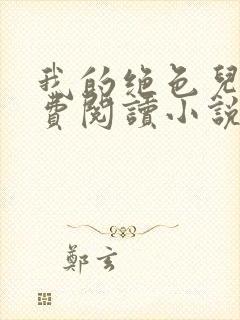 我的绝色兒
費閱讀小說
鄭玄